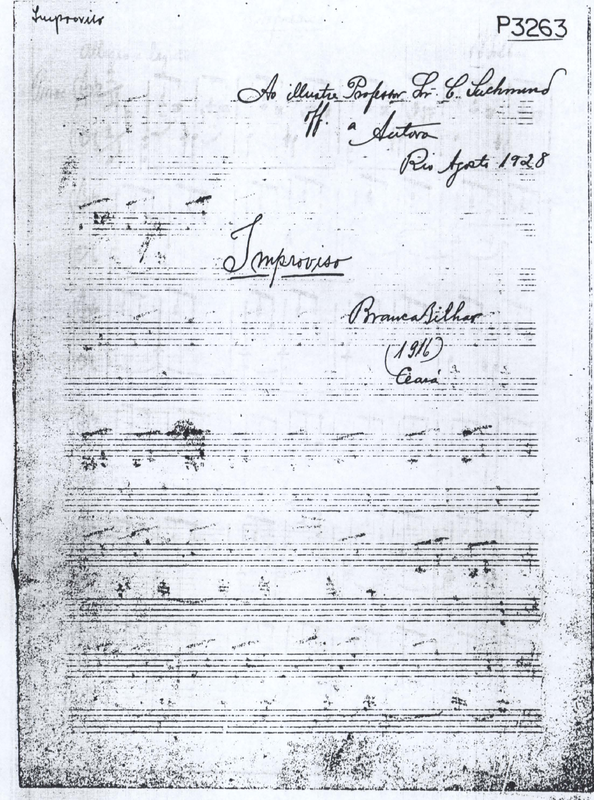 Improviso
P3263
Ao illustre Professor Sr. C.
off. a Autora
Rio Agosto 1928
Improviso
Branca Bilhar
(1916)
Ceará